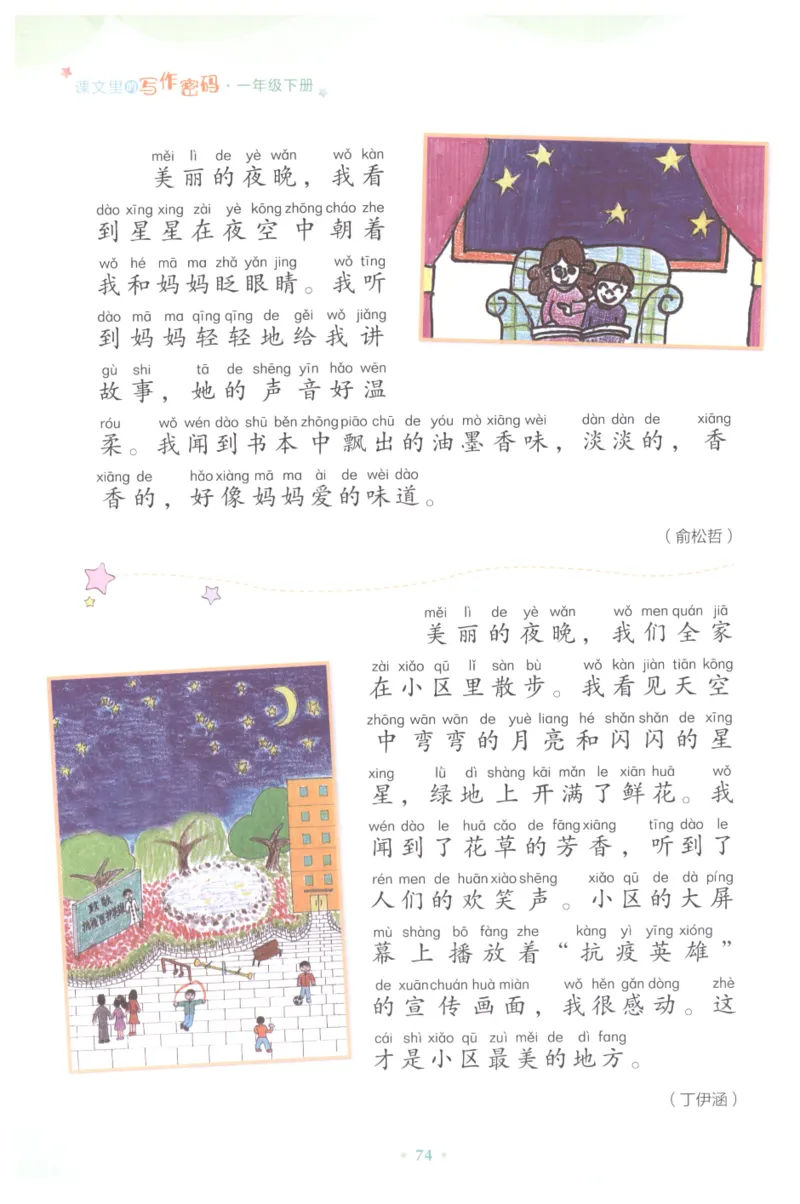 课文里的写作密码·一年级下册
měi lì de yè wǎn wǒ kàn
美丽的夜晚，我看
dào xīng xing zài yè kōng zhōng cháo zhe
到星星在夜空中朝着
wǒ hé mā ma zhǎ yǎn jing wǒ tīng
我和妈妈眨眼睛。我听
dào mā ma qīng qīng de gěi wǒ jiǎng
到妈妈轻轻地给我讲
gù shi tā de shēng yīn hǎo wēn
故事，她的声音好温
róu wǒ wén dào shū běn zhōng piāo chū de yóu mò xiāng wèi dàn dàn de xiāng
柔。我闻到书本中飘出的油墨香味，淡淡的，香
xiāng de hǎo xiàng mā ma ài de wèi dào
香的，好像妈妈爱的味道。
（俞松哲）
měi lì de yè wǎn wǒ men quán jiā
美丽的夜晚，我们全家
zài xiǎo qū lǐ sàn bù wǒ kàn jiàn tiān kōng
在小区里散步。我看见天空
zhōng wān wān de yuè liang hé shǎn shǎn de xīng
中弯弯的月亮和闪闪的星
xing lǜ dì shàng kāi mǎn le xiān huā wǒ
星，绿地上开满了鲜花。我
wén dào le huā cǎo de fāng xiāng tīng dào le
闻到了花草的芳香，听到了
rén men de huān xiào shēng xiǎo qū de dà píng
人们的欢笑声。小区的大屏
mù shàng bō fàng zhe kàng yì yīng xióng
幕上播放着“抗疫英雄”
de xuān chuán huà miàn wǒ hěn gǎn dòng zhè
的宣传画面，我很感动。这
cái shì xiǎo qū zuì měi de dì fang
才是小区最美的地方。
（丁伊涵）
74